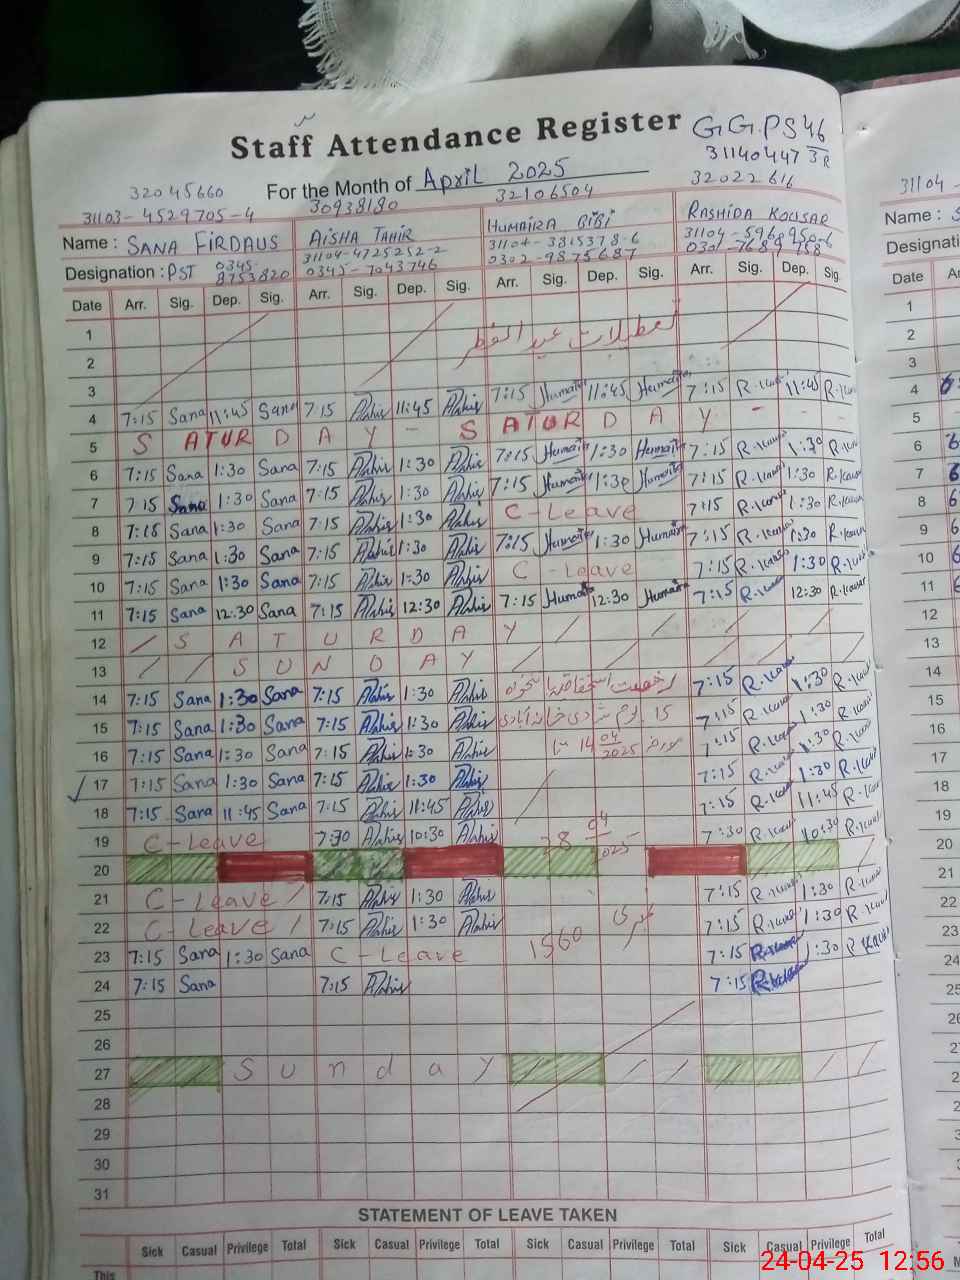 Staff Attendance Register
G.G.PS 46
3R
31140447
For the Month of April 2025
32045660
30938180
32106504
32022616
31103-4529705-4
Name : SANA FIRDAUS
AISHA TAHIR
HUMAIRA BIBI
RASHIDA KOUSAR
31104-4725252-2
31104-3815378-6
31104-5960950-6
Designation : PST
0345-8753820
0345-7043746
0302-9875687
0301-7689758
Date Arr. Sig. Dep. Sig. Arr. Sig. Dep. Sig. Arr. Sig. Dep. Sig. Arr. Sig. Dep. Sig.
1
تعطیلات عید الفطر
2
3
4 7:15 Sana 11:45 Sana 7:15 11:45 7:15 Humaira 11:45 Humaira 7:15 R.Kousar 11:45 R.Kousar
5 S ATUR D A Y - S ATUR D A Y - - -
6 7:15 Sana 1:30 Sana 7:15 1:30 7:15 Humaira 1:30 Humaira 7:15 R.Kousar 1:30 R.Kousar
7 7:15 Sana 1:30 Sana 7:15 1:30 7:15 Humaira 1:30 Humaira 7:15 R.Kousar 1:30 R.Kousar
8 7:15 Sana 1:30 Sana 7:15 1:30 C-Leave 7:15 R.Kousar 1:30 R.Kousar
9 7:15 Sana 1:30 Sana 7:15 1:30 7:15 Humaira 1:30 Humaira 7:15 R.Kousar 1:30 R.Kousar
10 7:15 Sana 1:30 Sana 7:15 1:30 C-Leave 7:15 R.Kousar 1:30 R.Kousar
11 7:15 Sana 12:30 Sana 7:15 12:30 7:15 Humaira 12:30 Humaira 7:15 R.Kousar 12:30 R.Kousar
12 / S A T U R D A Y / / / / /
13 / / S U N D A Y / / / / / /
14 7:15 Sana 1:30 Sana 7:15 1:30 رخصت استحقاقیہ تنخواہ 7:15 R.Kousar 1:30 R.Kousar
15 7:15 Sana 1:30 Sana 7:15 1:30 15 یوم شادی خانہ آبادی 7:15 R.Kousar 1:30 R.Kousar
16 7:15 Sana 1:30 Sana 7:15 1:30 مورخہ 14 04 2025 تا 7:15 R.Kousar 1:30 R.Kousar
17 7:15 Sana 1:30 Sana 7:15 1:30 7:15 R.Kousar 1:30 R.Kousar
18 7:15 Sana 11:45 Sana 7:15 11:45 7:15 R.Kousar 11:45 R.Kousar
19 C-Leave 7:30 10:30 28 04 2025 7:30 R.Kousar 10:30 R.Kousar
20
21 C-Leave / 7:15 1:30 7:15 R.Kousar 1:30 R.Kousar
22 C-Leave / 7:15 1:30 7:15 R.Kousar 1:30 R.Kousar
23 7:15 Sana 1:30 Sana C-Leave 1560 7:15 R.Kousar 1:30 R.Kousar
24 7:15 Sana 7:15 7:15 R.Kousar
25
26
27 S u n d a y / / / /
28
29
30
31
STATEMENT OF LEAVE TAKEN
Sick Casual Privilege Total Sick Casual Privilege Total Sick Casual Privilege Total Sick Casual Privilege Total
This
31104-
Name : S
Designati
Date
1
2
3
4
5
6
7
8
9
10
11
12
13
14
15
16
17
18
19
20
21
22
23
24
25
26
24-04-25 12:56